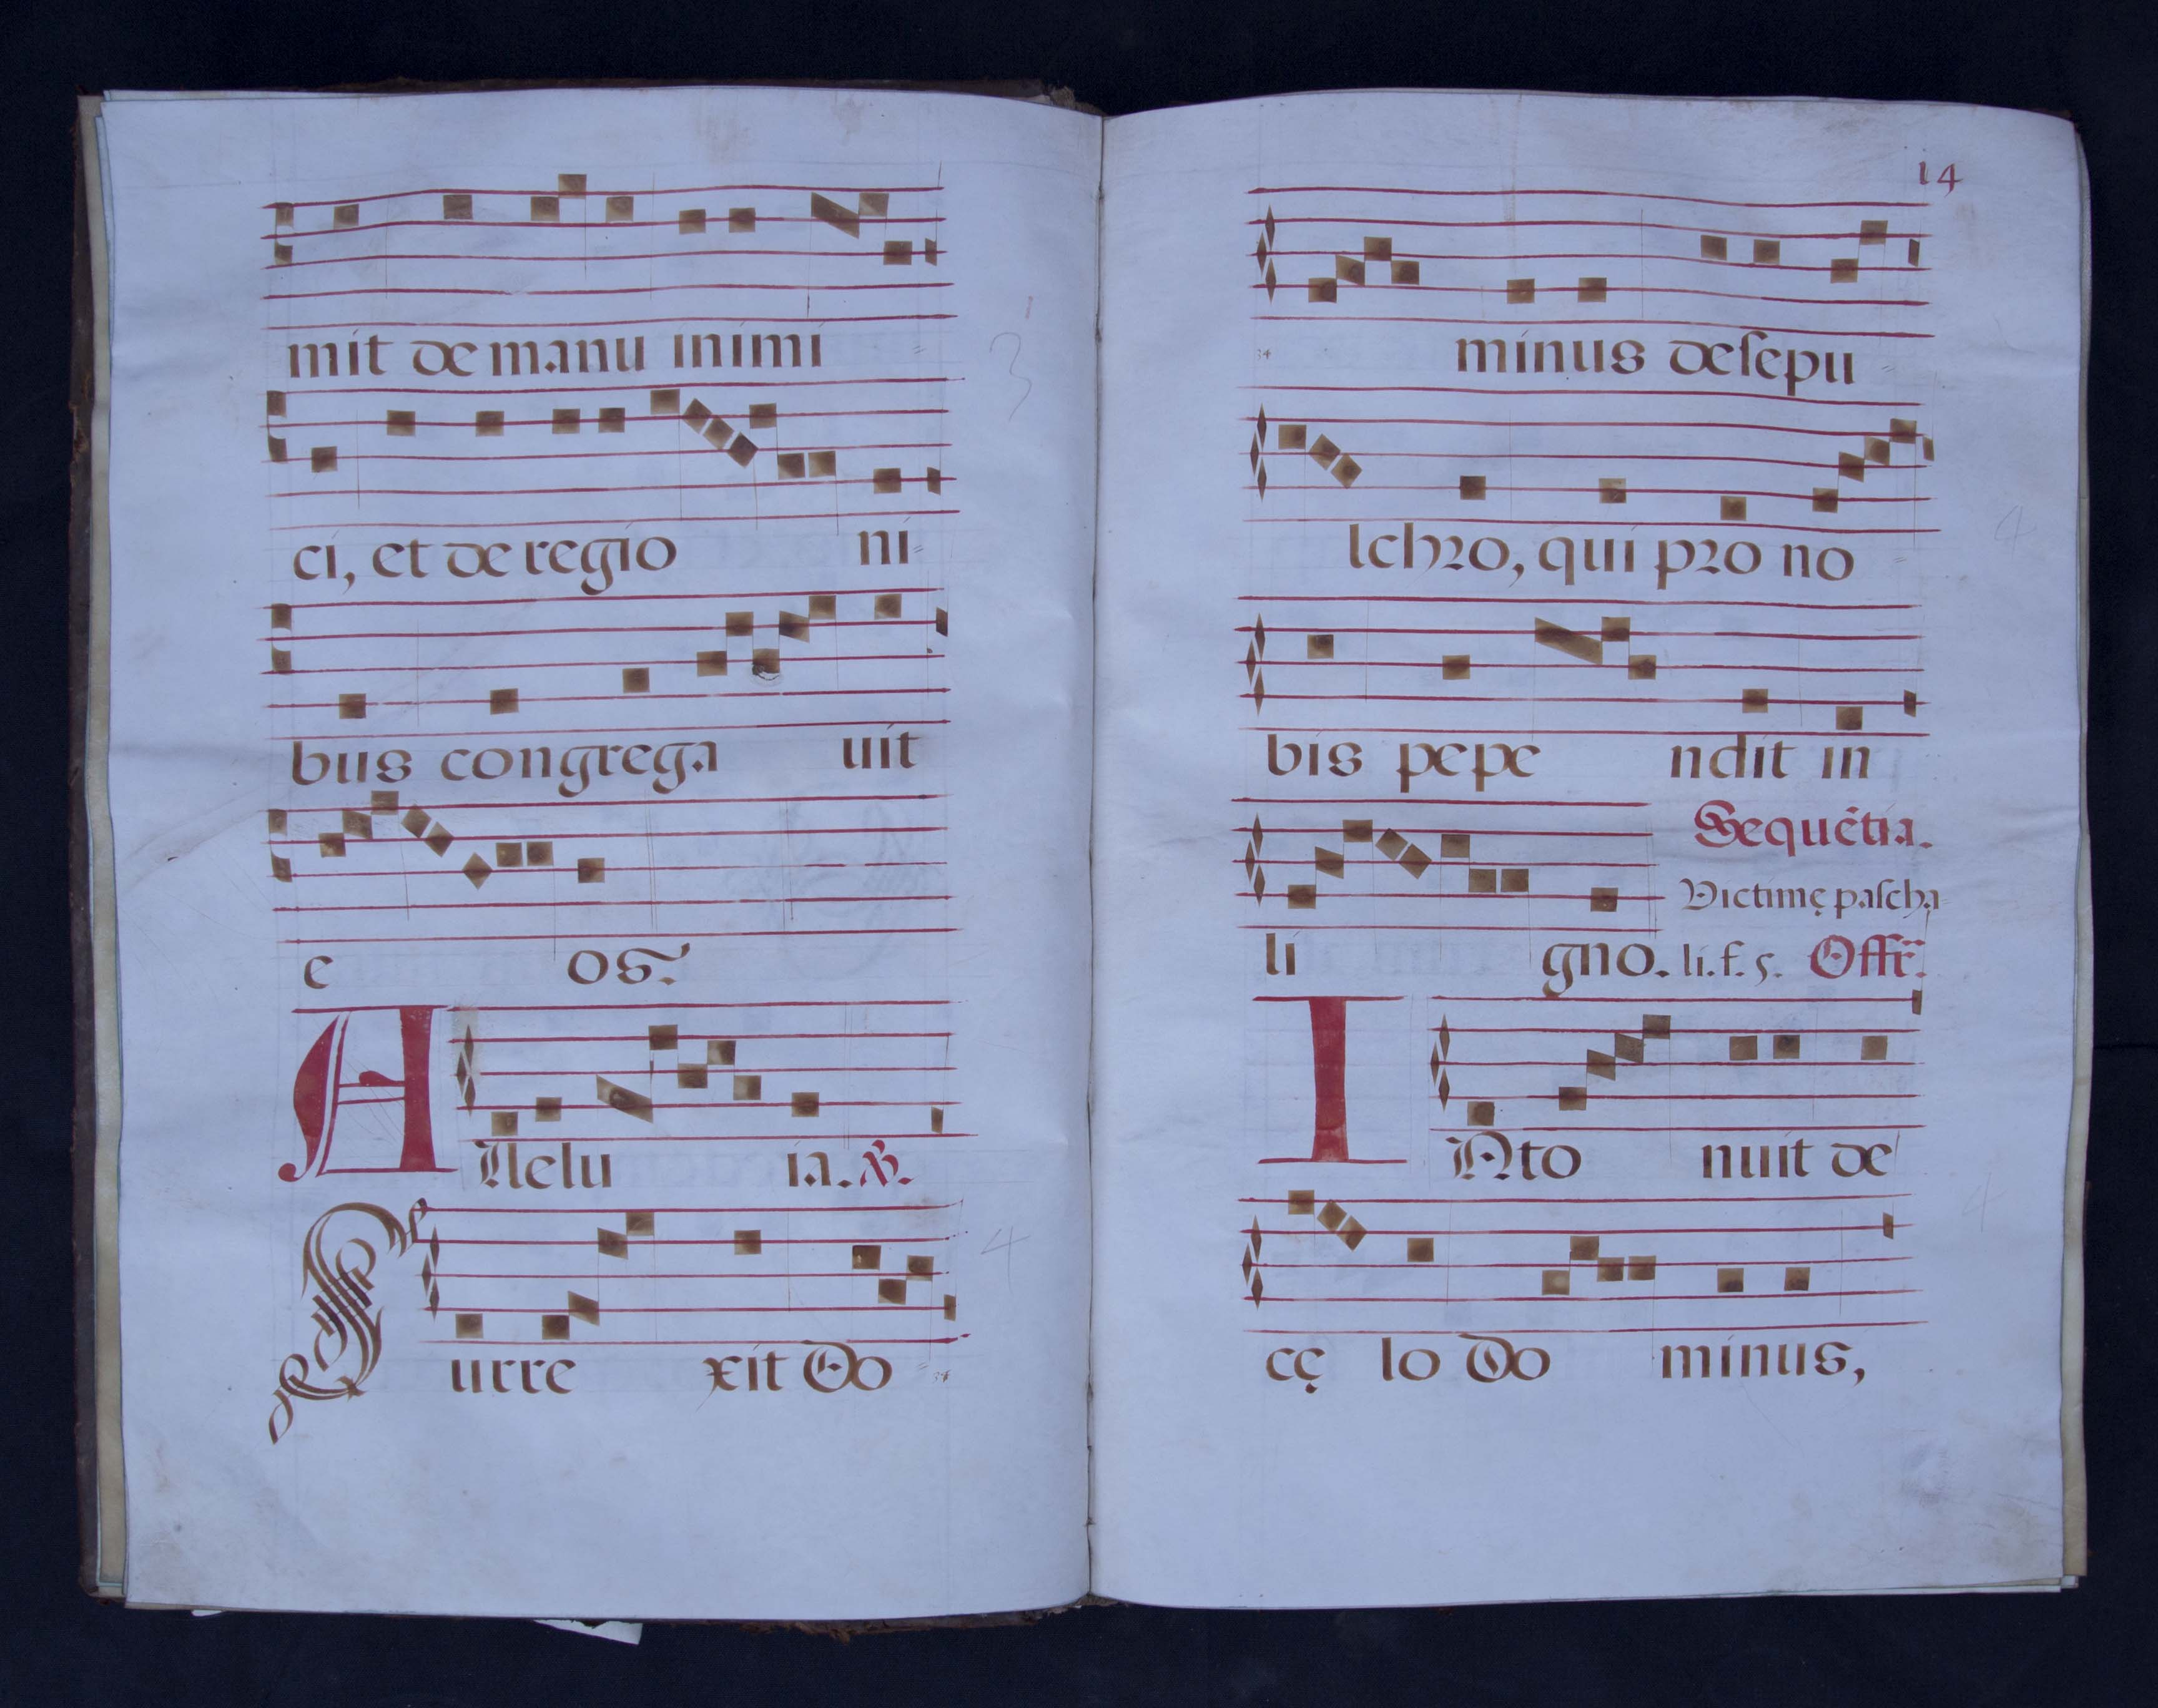 mit de manu inimi
ci, et de regio ni
bus congrega uit
e os.
Allelu ia. ℣.
Surre xit Do
14
minus de sepu
lchro, qui pro no
bis pepe ndit in
Sequẽtia.
Victimę pascha
li gno. li. f. 5. Offr̃.
INto nuit de
cę lo Do minus,